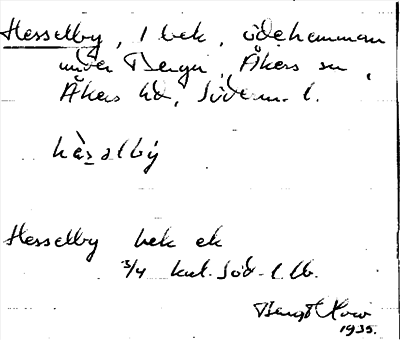 Hesselby, 1 bek, ödehemman
under Berga, Åkers sn,
Åkers hd, Söderm. l.
hàsalbý
Hesselby bek ek
3/4 kal. Söd. l. lb.
Bengt
1935.